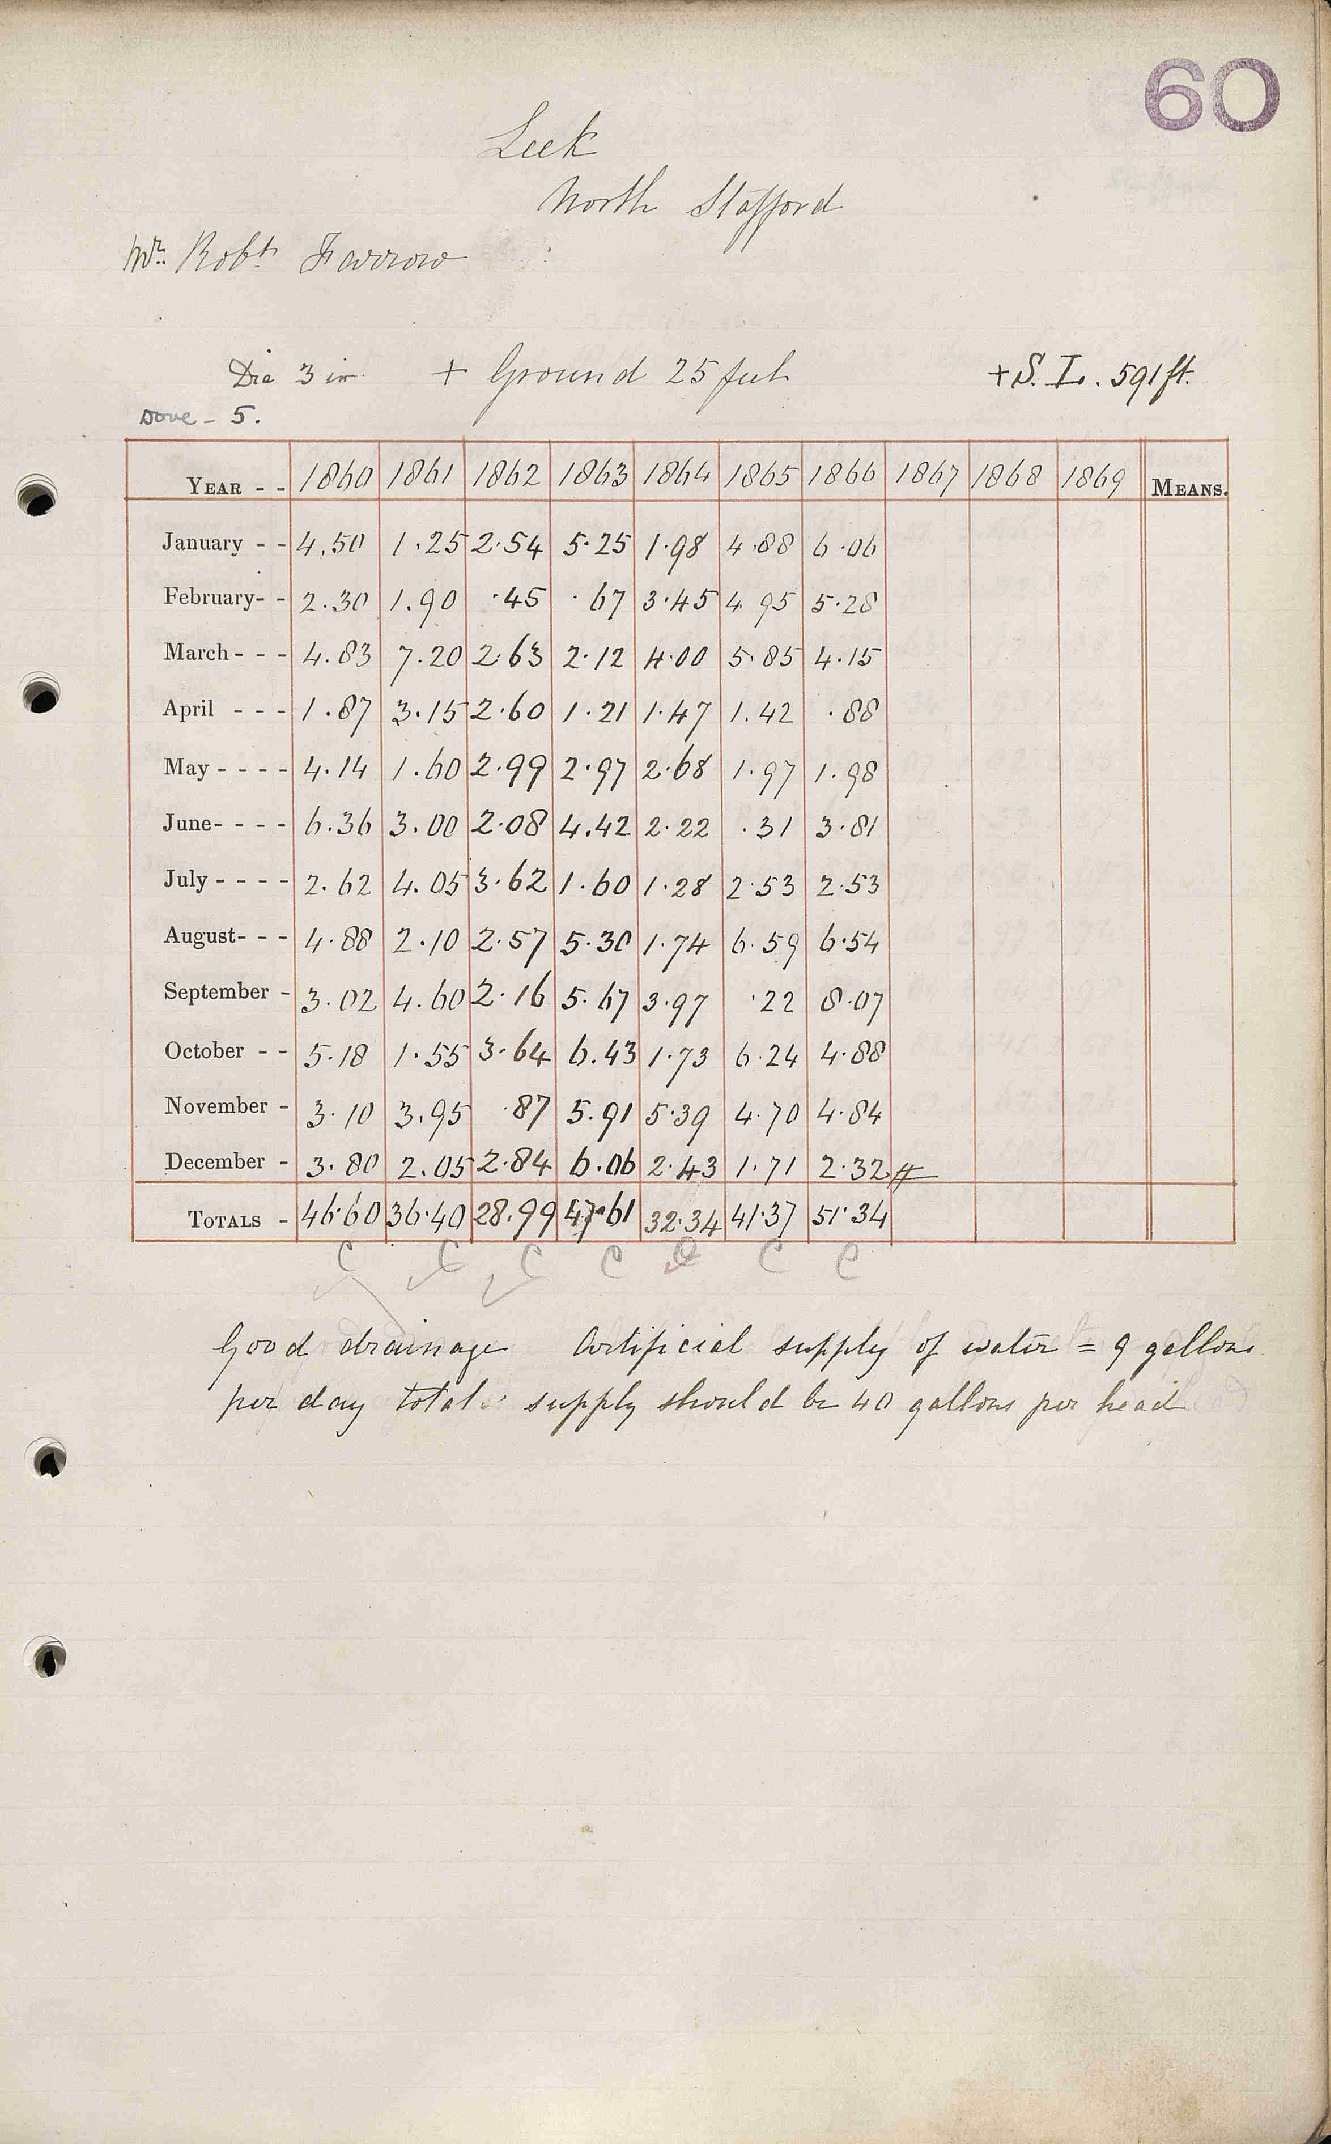 60
Leek
North Stafford
Mr. Robt. Farrow
Dia 3 in. + Ground 25 feet + S. L. 591 ft.
Dove - 5.
YEAR - - 1860 1861 1862 1863 1864 1865 1866 1867 1868 1869 MEANS.
January - - 4.50 1.25 2.54 5.25 1.98 4.88 6.06
February - - 2.30 1.90 .45 .67 3.45 4.95 5.28
March - - - 4.83 7.20 2.63 2.12 4.00 5.85 4.15
April - - - 1.87 3.15 2.60 1.21 1.47 1.42 .88
May - - - - 4.14 1.60 2.99 2.97 2.68 1.97 1.98
June - - - - 6.36 3.00 2.08 4.42 2.22 .31 3.81
July - - - - 2.62 4.05 3.62 1.60 1.28 2.53 2.53
August - - - 4.88 2.10 2.57 5.30 1.74 6.59 6.54
September - 3.02 4.60 2.16 5.67 3.97 .22 8.07
October - - 5.18 1.55 3.64 6.43 1.73 6.24 4.88
November - 3.10 3.95 .87 5.91 5.39 4.70 4.84
December - 3.80 2.05 2.84 6.06 2.43 1.71 2.32 #
TOTALS - 46.60 36.40 28.99 47.61 32.34 41.37 51.34
C C C C C C C
Good drainage Artificial supply of water = 9 gallons
per day total: supply should be 40 gallons per head